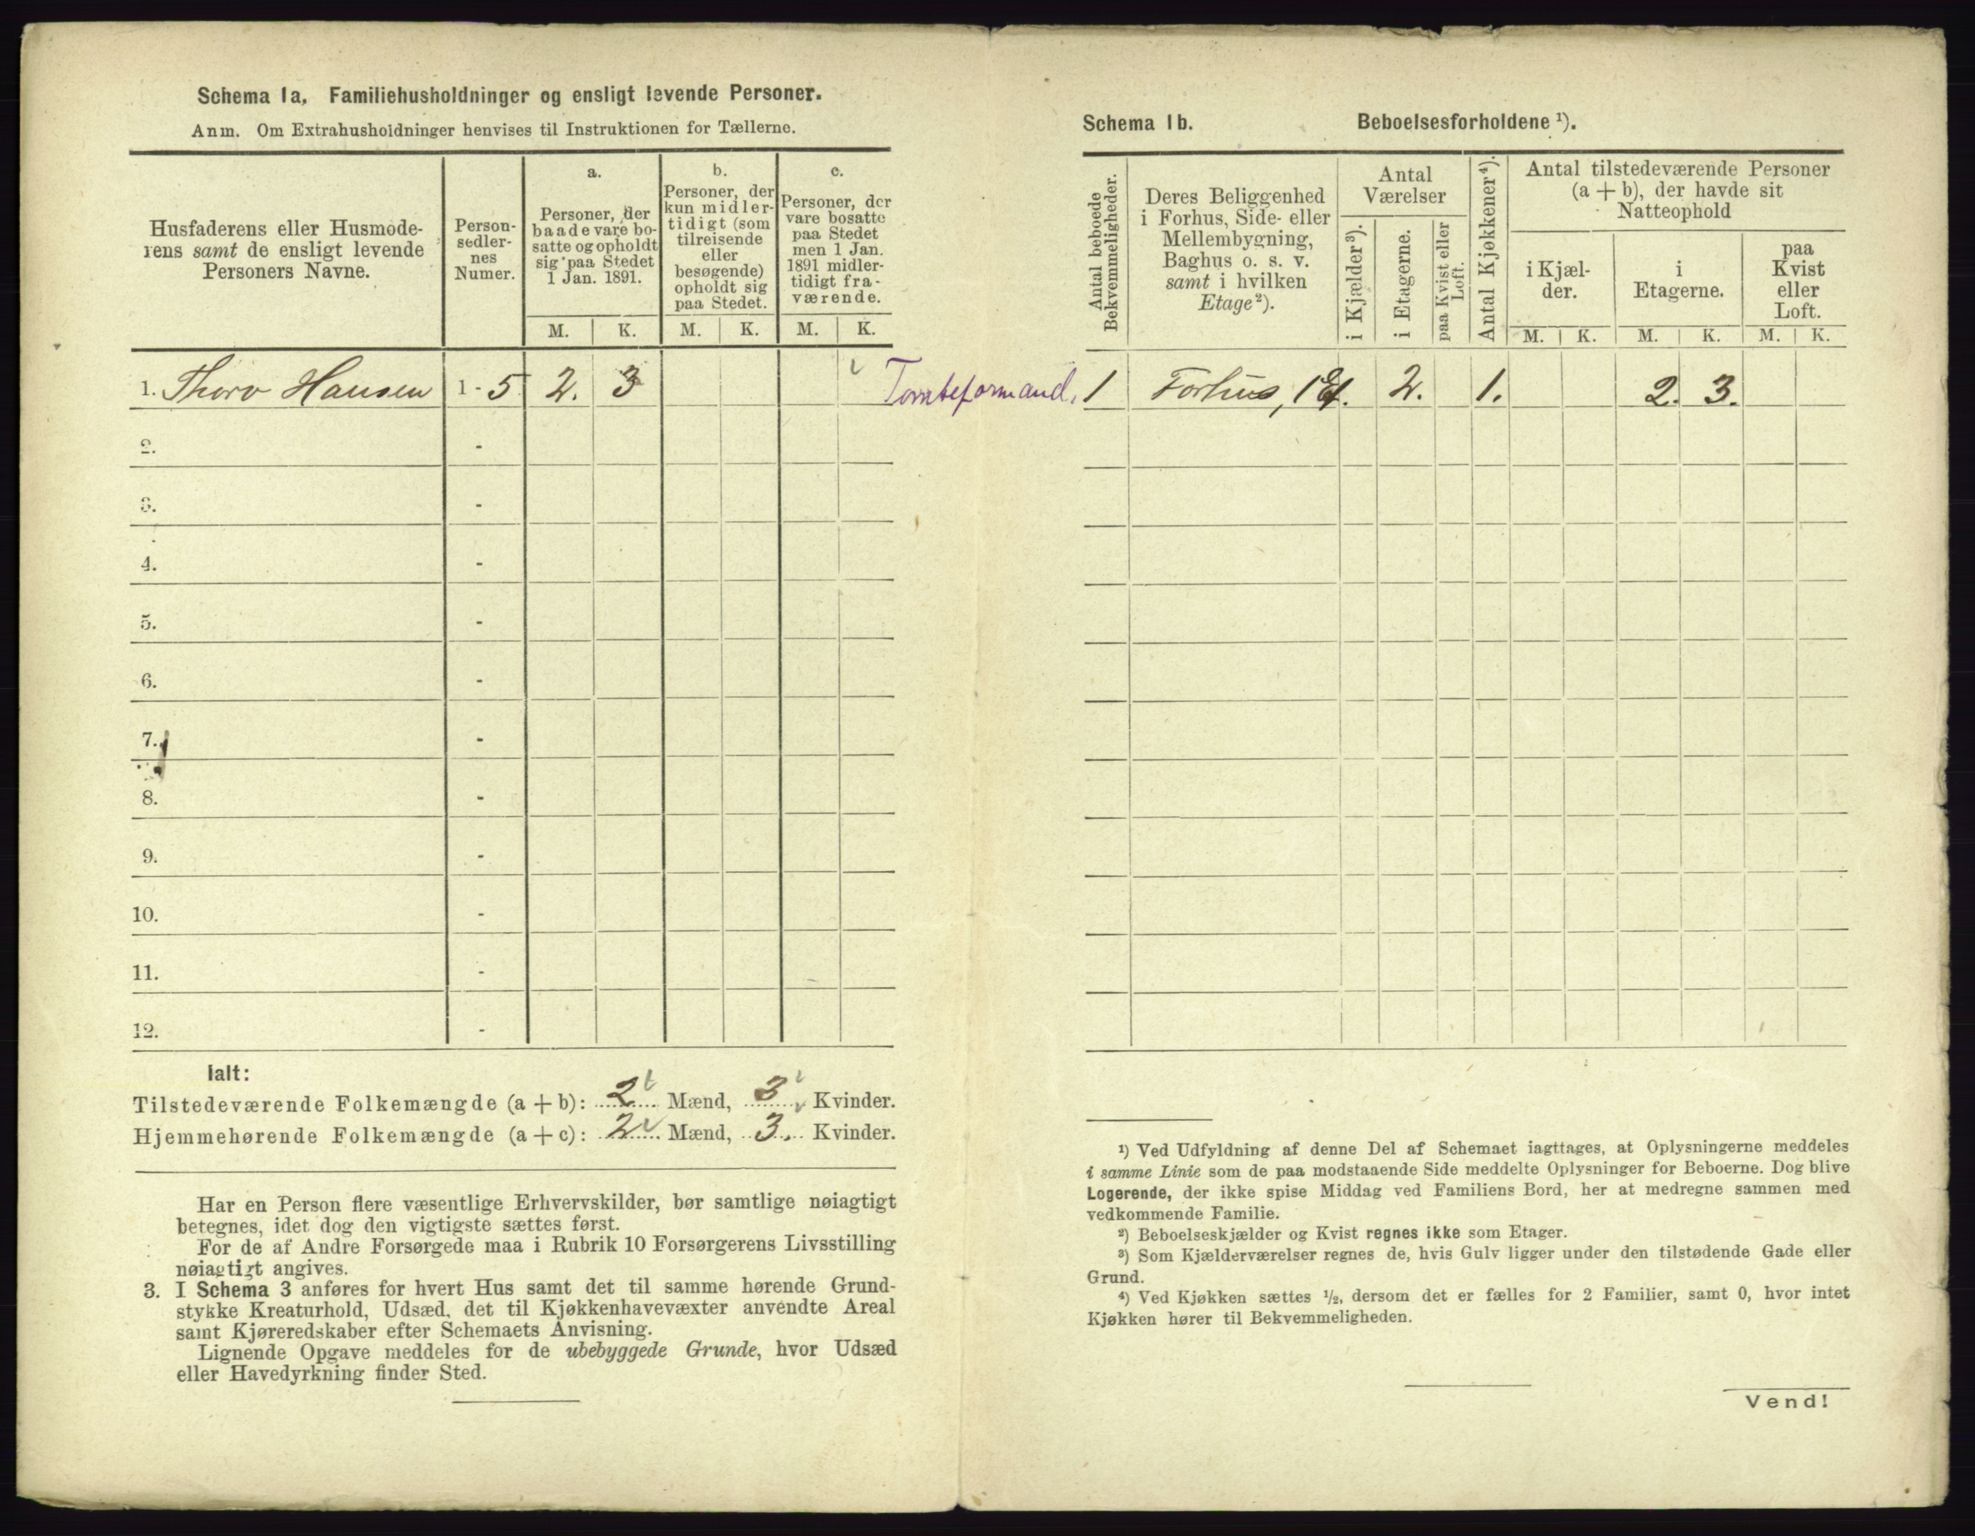 Schema 1a. Familiehusholdninger og ensligt levende Personer.
Anm. Om Extrahusholdninger henvises til Instruktionen for Tællerne.
Husfaderens eller Husmode-
rens samt de ensligt levende
Personers Navne.
Person-
sedler-
nes
Numer.
a.
Personer, der
baade vare bo-
satte og opholdt
sig paa Stedet
1 Jan. 1891.
b.
Personer, der
kun midler-
tidigt (som
tilreisende
eller
besøgende)
opholdt sig
paa Stedet.
c.
Personer, der
vare bosatte
paa Stedet
men 1 Jan.
1891 midler-
tidigt fra-
værende.
M. K. M. K. M. K.
1. Thorv Hansen 1 - 5 2. 3 Tomteformand.
2. -
3. -
4. -
5. -
6. -
7. -
8. -
9. -
10. -
11. -
12. -
Ialt:
Tilstedeværende Folkemængde (a + b): 2 Mænd, 3 Kvinder.
Hjemmehørende Folkemængde (a + c): 2 Mænd, 3. Kvinder.
Har en Person flere væsentlige Erhvervskilder, bør samtlige nøiagtigt
betegnes, idet dog den vigtigste sættes først.
For de af Andre Forsørgede maa i Rubrik 10 Forsørgerens Livsstilling
nøiagtigt angives.
3. I Schema 3 anføres for hvert Hus samt det til samme hørende Grund-
stykke Kreaturhold, Udsæd, det til Kjøkkenhavevæxter anvendte Areal
samt Kjøreredskaber efter Schemaets Anvisning.
Lignende Opgave meddeles for de ubebyggede Grunde, hvor Udsæd
eller Havedyrkning finder Sted.
Schema 1b. Beboelsesforholdene ¹).
Antal beboede
Bekvemmeligheder.
Deres Beliggenhed
i Forhus, Side- eller
Mellembygning,
Baghus o. s. v.
samt i hvilken
Etage²).
Antal
Værelser
i Kjælder³).
i Etagerne.
paa Kvist eller
Loft.
Antal Kjøkkener⁴).
Antal tilstedeværende Personer
(a + b), der havde sit
Natteophold
i Kjæl-
der.
i
Etagerne.
paa
Kvist
eller
Loft.
M. K. M. K. M. K.
1 Forhus, 1 Et. 2. 1. 2. 3.
¹) Ved Udfyldning af denne Del af Schemaet iagttages, at Oplysningerne meddeles
i samme Linie som de paa modstaaende Side meddelte Oplysninger for Beboerne. Dog blive
Logerende, der ikke spise Middag ved Familiens Bord, her at medregne sammen med
vedkommende Familie.
²) Beboelseskjælder og Kvist regnes ikke som Etager.
³) Som Kjælderværelser regnes de, hvis Gulv ligger under den tilstødende Gade eller
Grund.
⁴) Ved Kjøkken sættes ½, dersom det er fælles for 2 Familier, samt 0, hvor intet
Kjøkken hører til Bekvemmeligheden.
Vend!